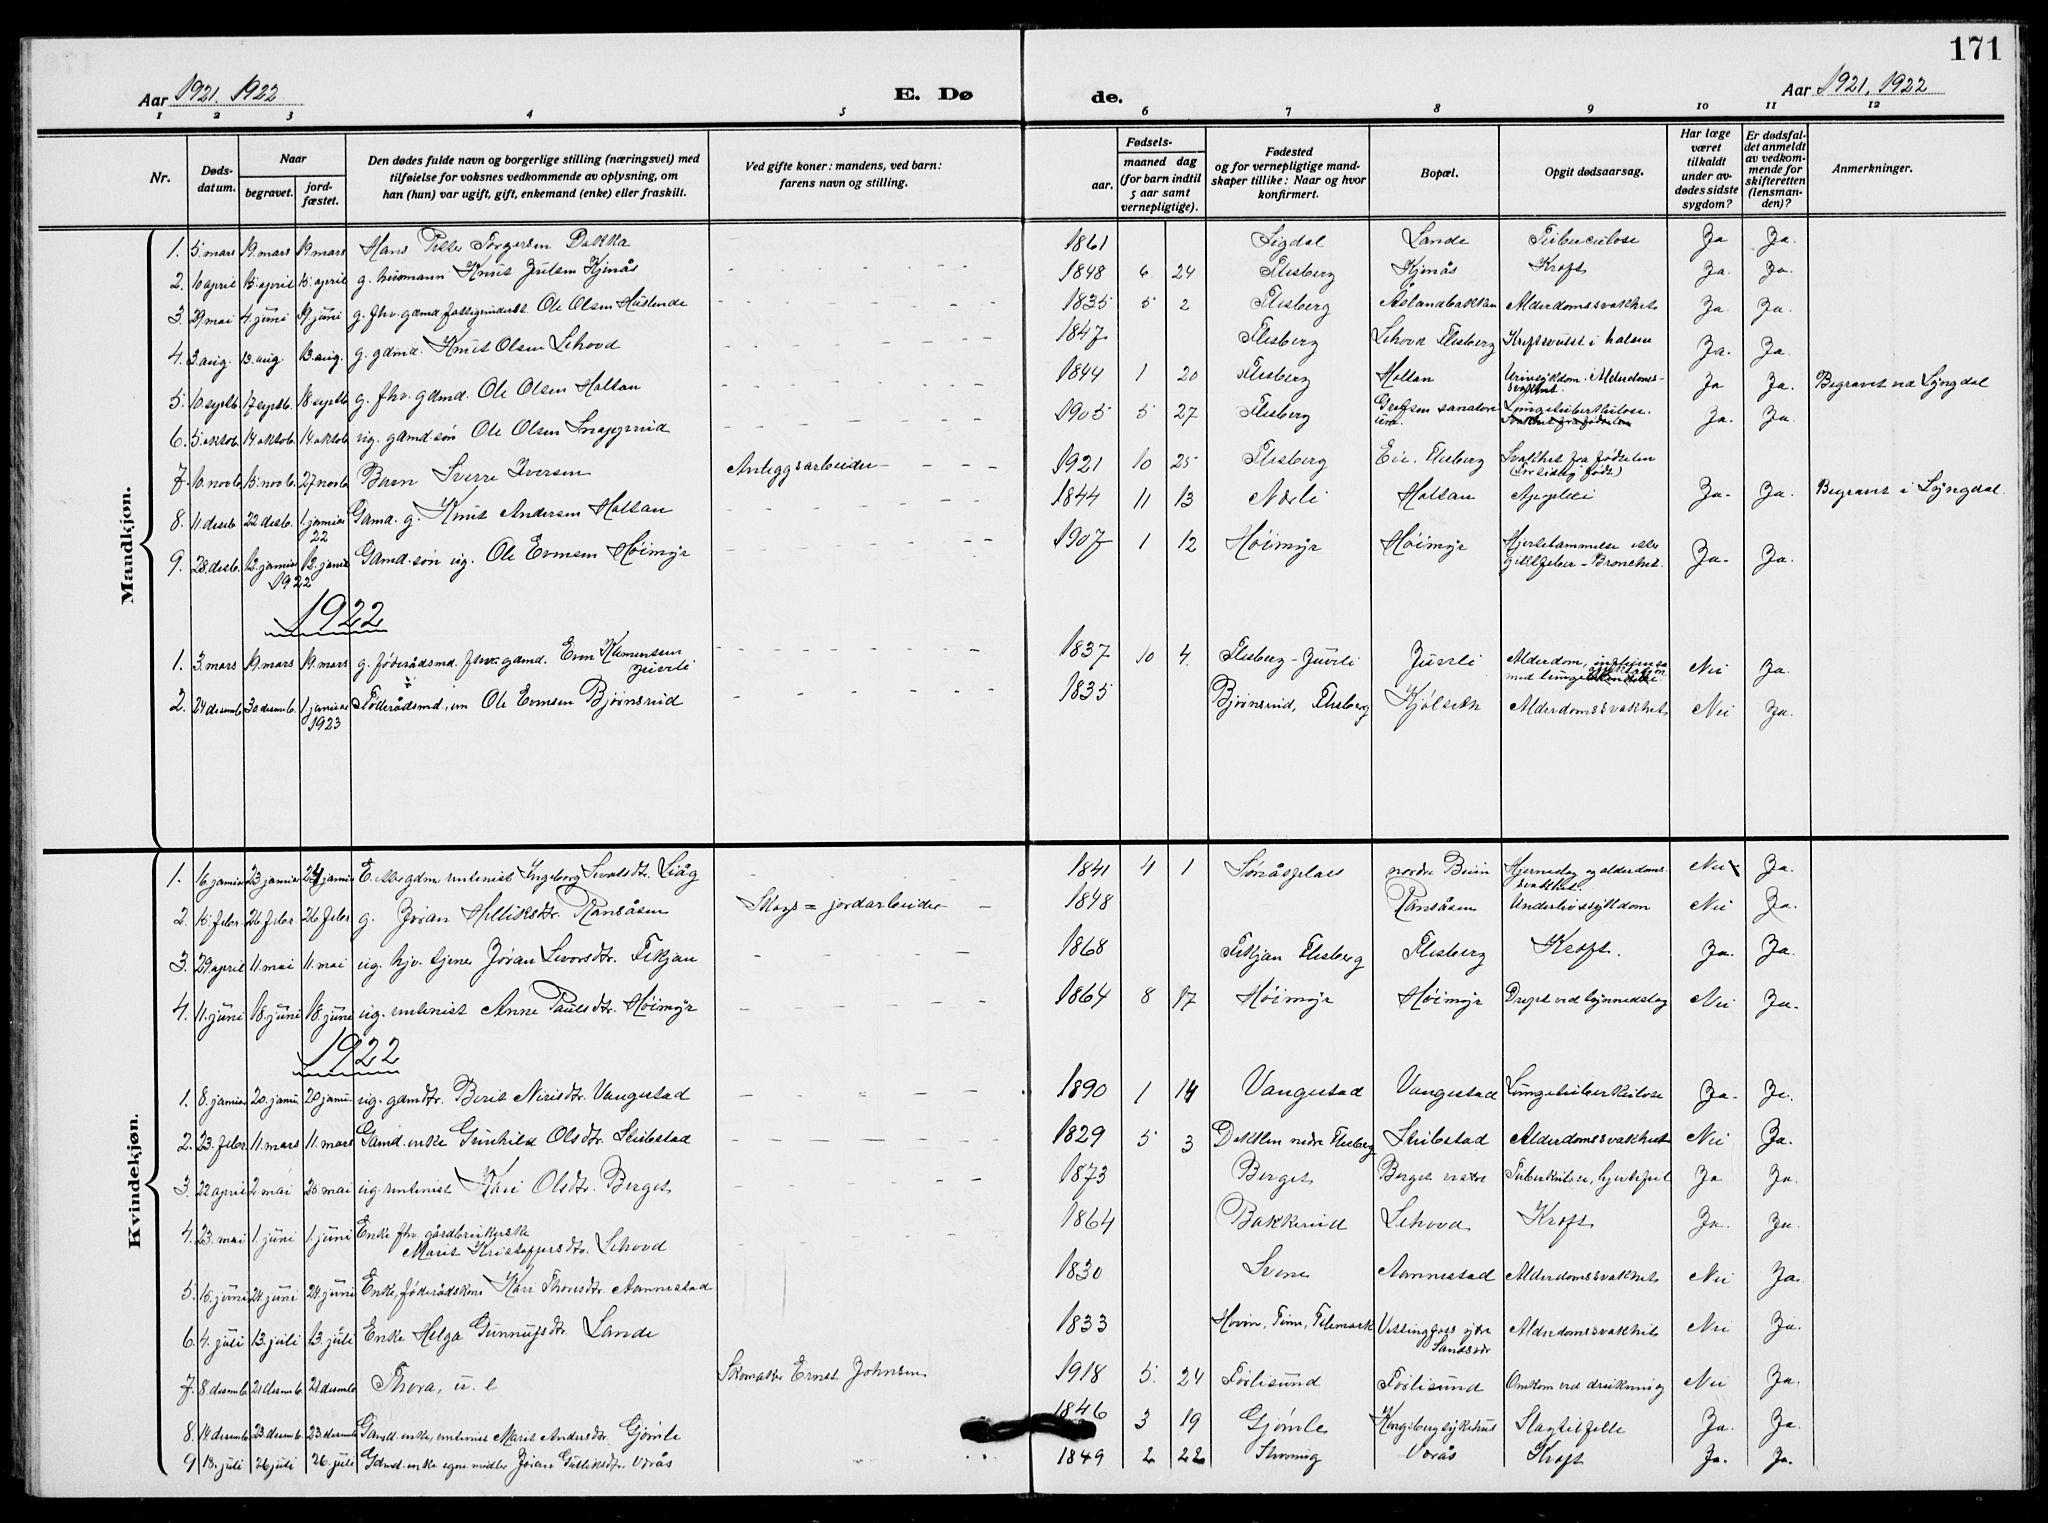 171
Aar 1921. 1922
E. Dø
de.
Aar 1921, 1922
1 2 3 4 5 6 7 8 9 10 11 12
Nr.
Døds-
datum.
Naar
begravet.
jord-
fæstet.
Den dødes fulde navn og borgerlige stilling (næringsvei) med
tilføielse for voksnes vedkommende av oplysning, om
han (hun) var ugift, gift, enkemand (enke) eller fraskilt.
Ved gifte koner: mandens, ved barn:
farens navn og stilling.
Fødsels-
aar.
maaned dag
(for barn indtil
5 aar samt
vernepligtige).
Fødested
og for vernepligtige mand-
skaper tillike: Naar og hvor
konfirmert.
Bopæl.
Opgit dødsaarsag.
Har læge
været
tilkaldt
under av-
dødes sidste
sygdom?
Er dødsfal-
det anmeldt
av vedkom-
mende for
skifteretten
(lensman-
den)?
Anmerkninger.
Mandkjøn.
1. 5. mars 19. mars 19. mars Hans Torgersen Dokka 1861 Sigdal Lande Tuberculose Ja Ja.
2. 10 april 15. april 15. april g. husmann Knut Julsen Kjenås 1848 6 24 Flesberg Kjenås Kræft Ja. Ja.
3. 29 mai 4. juni 19 juni g. fhv. gdmd. Ole Olsen 1835 5 2 Flesberg Åslandbakken Alderdomssvakhet Ja. Ja.
4. 3. aug. 13. aug. 13. aug. g. gdmd. Knut Olsen Lehovd 1847. Flesberg Lehovd Flesberg Kreftsvulst i halsen Ja. Ja.
5. 10 septb. 17 septb. 18 septb g. fhv. gdmd. Ole Olsen Holtan 1844 1 20 Flesberg Holtan Urinsykdom. Alderdoms-
svakhet. Ja Ja. Begravet ved Lyngdal
6. 5. oktob. 14 oktob. 14 oktob ug. gdmd. søn Ole Olsen 1905 5 27 Flesberg Grefsen sanatori
um. Lungetuberkulose. Ja. Ja.
7. 10. novb. 15. novb. 27 novb. Barn Sverre Iversen Anleggsarbeider 1921 10 25 Flesberg Eie. Flesberg Svakhet fra fødselen
(For tidlig født)
8. 11. desb. 22 desb. 1. januar
22 Gdmd. g. Knut Andersen Holtan 1844 11 13 Nærli Holtan Apoplexi Ja. Ja. Begravet i Lyngdal.
9. 28. desb. 12. januar 12. januar
1922 Gdmd. søn ug. Ole Evensen Høimyr 1907 1 12 Høimyr Høimyr Hjertelammelse efter
giktfeber - Bronchit. Ja. Ja.
1922
1. 3. mars 19. mars 19. mars g. føderådsmd. fhv. gdmd. Even Klemmetsen
Juvrli 1837 10 4. Flesberg - Juvrli Juvrli Alderdom, Nei Ja.
2. 24 desemb. 30 desemb. 1. januar
1923 Føderådsmd, em Ole Evensen Bjørnsrud 1835 Bjørnsrud, Flesberg Alderdomssvakhet Nei Ja.
Kvindekjøn.
1. 16. januar 23 januar 24 januar Ingeborg Sevatsdtr. Liåg 1841 4 1 Sønåsplass nordre Bruun Hjerneslag og alderdoms-
svakhet. Nei Ja.
2. 15. febr. 26 febr 26 febr g. Jøran Helliksdtr. Ramsåsen Skogs = jordarbeider 1848 Ramsåsen Underlivssykdom Nei Ja.
3. 29. april 11. mai 11. mai ug. hjv. tjener Jøran Sevorsdtr. Fekjan 1868 Fekjan Flesberg Flesberg Kræft. Ja. Ja.
4. 11. juni 18. juni 18. juni ug. underst Anne Paulsdtr. Høimyr 1864 8 17 Høimyr Høimyr Dræpt ved lynnedslag Nei Ja.
1922
1. 8. januar 20. janu. 20 janu. ug. gdmdtr. Berit Nirisdtr. Vangestad 1890 1 14 Vangestad Vangestad Lungetuberkulose Ja. Ja.
2. 23. febr 11. mars 11. mars Gdmd. enke Gunhild Olsdtr. Skibestad 1829 5 3 Dokken nedre Flesberg Skibestad Alderdomssvakhet Nei Ja.
3. 22 april 2 mai 25. mai ug. underst Kari Olsdtr. Berget 1873 Berget Berget Tuberkulose, hjertefeil Ja Ja.
4. 23. mai 1. juni 1. juni Enke fhv. gårdbrukerske
Marit Kristoffersdtr. Lehovd 1864 Bakkerud Lehovd Kræft Ja. Ja.
5. 16. juni 24. juni 24. juni Enke, føderådskone Kari Thorsdtr. Aannestad 1830 Svene Aannestad Alderdomssvakhet Nei Ja.
6. 4. juli 13. juli 13. juli Enke Helga Gunnufsdtr. Lande 1833 Hovin, Tinn, Telemark Vittingfoss ytre
Sandsvær Alderdomssvakhet Nei Ja.
7. 8 desemb. 21 desemb. 21 desemb Thora, u. e Skomaker Ernst Johnsen 1918 5. 24 Førlisund Førlisund Omkom ved drukning Nei Ja.
8. 14 desemb 23 desemb 23 desemb Gdmd. enke, underst Marit Andersdtr. Gjømle 1846 3 19 Gjømle Kongsberg sykehus Slagtilfelle Ja. Ja.
9 18. juli 26 juli 26. juli Gdmd. enke egne midler Jøran Gulliksdtr. Vorås 1849 2 22 Vorås Kræft Ja. Ja.